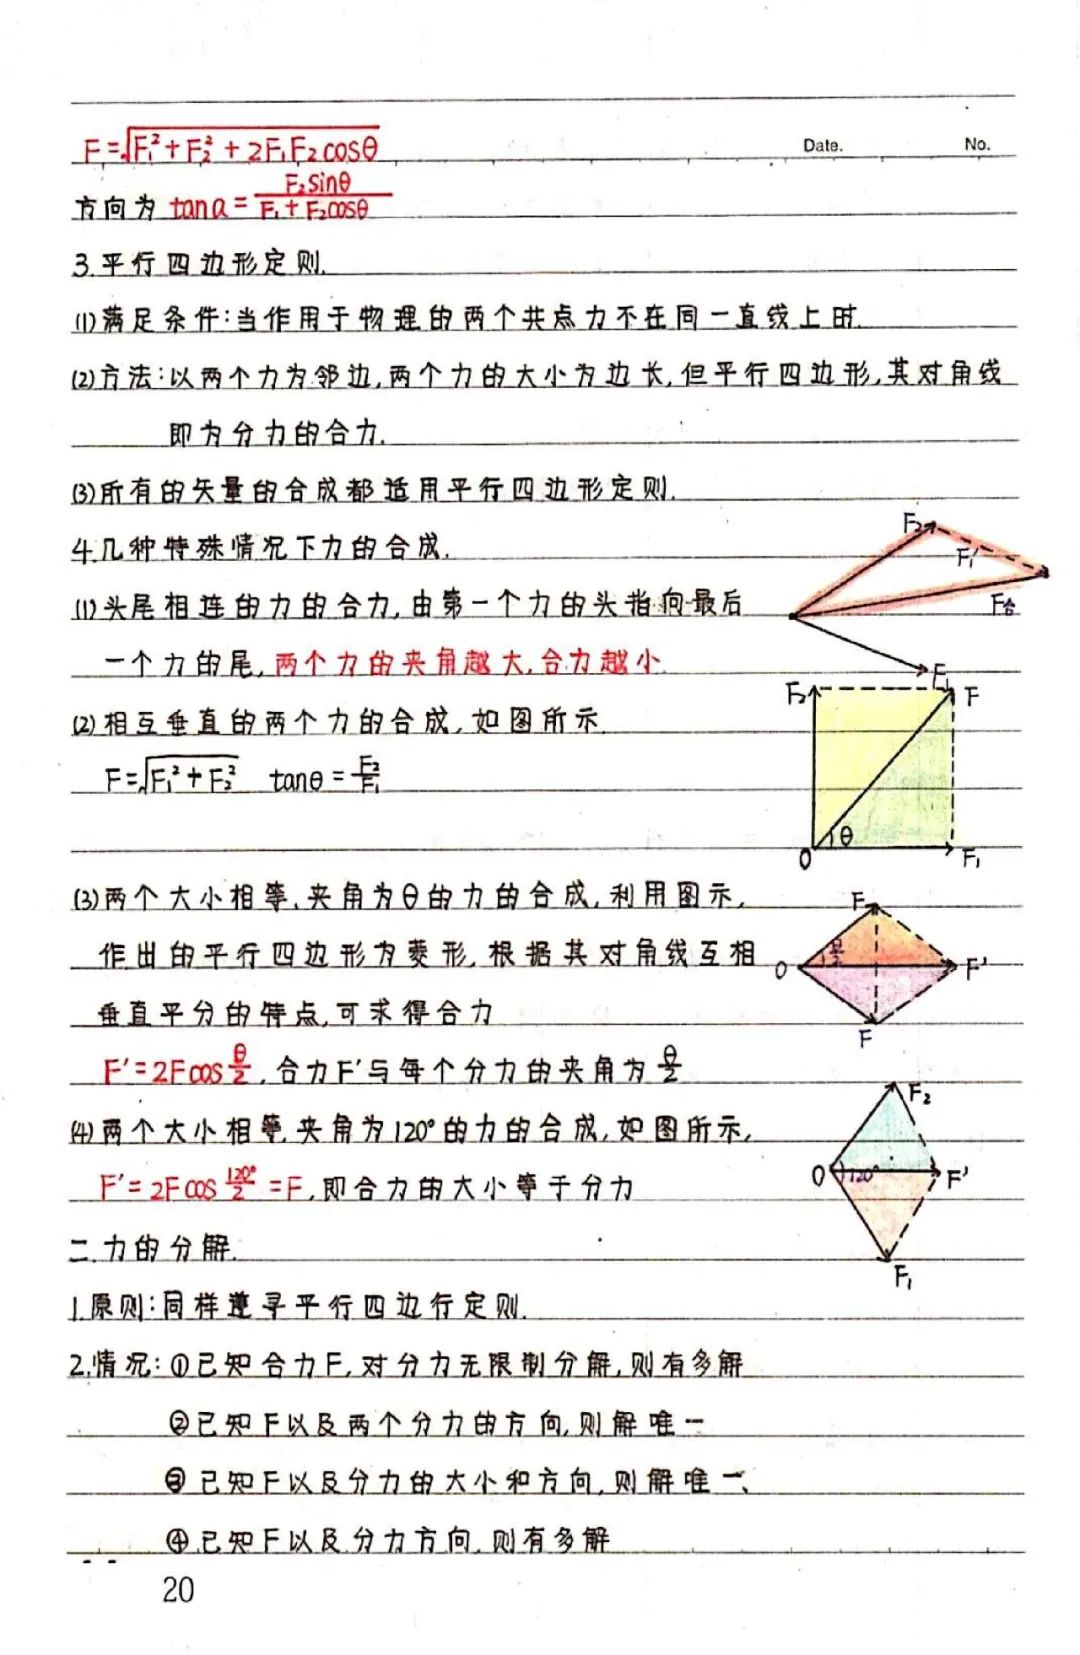 Date. No.
F=√F₁²+F₂²+2F₁F₂cosθ
方向为 tanα=F₂sinθ/F₁+F₂cosθ
3.平行四边形定则.
(1)满足条件:当作用于物理的两个共点力不在同一直线上时.
(2)方法:以两个力为邻边,两个力的大小为边长,但平行四边形,其对角线
即为分力的合力.
(3)所有的矢量的合成都适用平行四边形定则.
4.几种特殊情况下力的合成.
(1)头尾相连的力的合力,由第一个力的头指向最后
一个力的尾,两个力的夹角越大,合力越小.
F₂ F₁' F合 F₁
(2)相互垂直的两个力的合成,如图所示.
F=√F₁²+F₂² tanθ=F₂/F₁
F₂ F θ O F₁
(3)两个大小相等,夹角为θ的力的合成,利用图示,
作出的平行四边形为菱形,根据其对角线互相
垂直平分的特点,可求得合力
F'=2Fcosθ/2,合力F'与每个分力的夹角为θ/2
F O θ/2 F' F
(4)两个大小相等,夹角为120°的力的合成,如图所示,
F'=2Fcos120°/2=F,即合力的大小等于分力
F₂ O 120° F' F₁
二.力的分解.
1.原则:同样遵寻平行四边行定则.
2.情况:①已知合力F,对分力无限制分解,则有多解
②已知F以及两个分力的方向,则解唯一
③已知F以及分力的大小和方向,则解唯一、
④已知F以及分力方向,则有多解
20